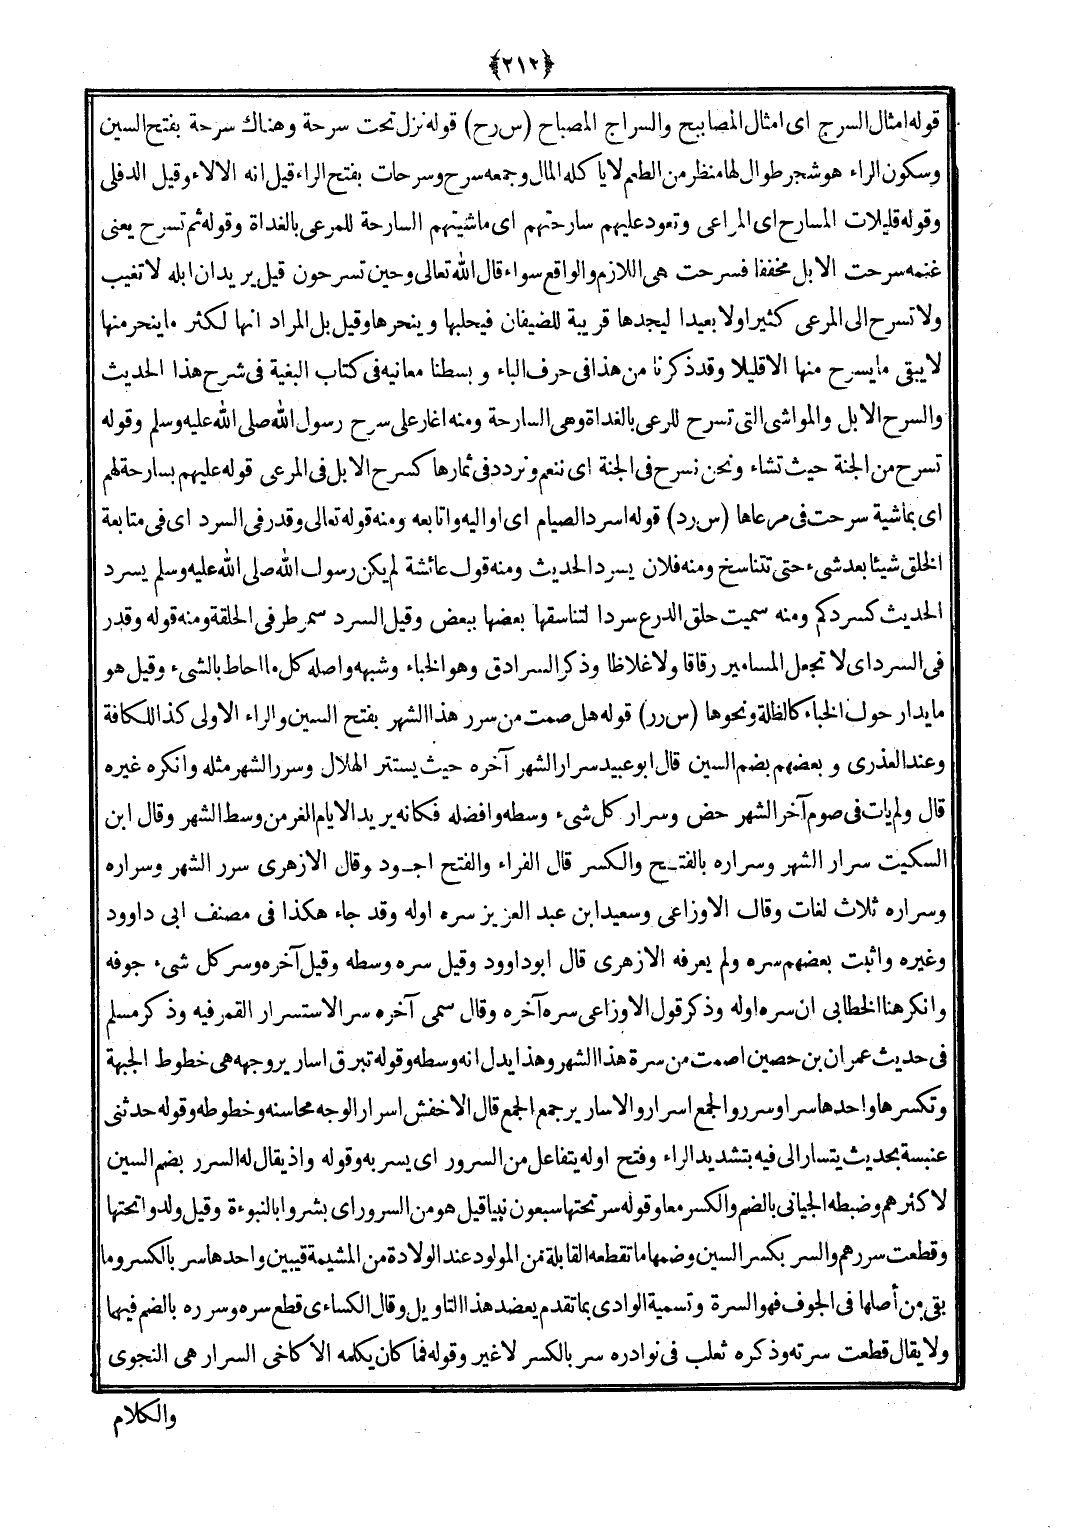 ﴿٢١٢﴾
قوله امثال السرج اى امثال المصابيح والسراج المصباح (س رح) قوله نزل تحت سرحة وهناك سرحة بفتح السين
وسكون الراء هو شجر طوال لها منظر من الطعم لا ياكله المال وجمعه سرح وسرحات بفتح الراء قيل انه الالاء وقيل الدفلى
وقوله قليلات المسارح اى المراعى وتعود عليهم سارحتهم اى ماشيتهم السارحة للمرعى بالغداة وقوله ثم تسرح يعنى
غنمه سرحت الابل مخففا فسرحت هى اللازم والواقع سواء قال الله تعالى وحين تسرحون قيل يريد ان ابله لا تغيب
ولا تسرح الى المرعى كثيرا ولا بعيدا ليجدها قريبة للضيفان فيحلبها وينحرها وقيل بل المراد انها لكثر ما ينحر منها
لا يبقى ما يسرح منها الا قليلا وقد ذكرنا من هذا فى حرف الباء و بسطنا معانيه فى كتاب البغية فى شرح هذا الحديث
والسرح الابل والمواشى التى تسرح للرعى بالغداة وهى السارحة ومنه اغار على سرح رسول الله صلى الله عليه وسلم وقوله
تسرح من الجنة حيث تشاء ونحن نسرح فى الجنة اى ننعم ونردد فى ثمارها كسرح الابل فى المرعى قوله عليهم بسارحة لهم
اى بماشية سرحت فى مرعاها (س رد) قوله اسرد الصيام اى اواليه واتابعه ومنه قوله تعالى وقدر فى السرد اى فى متابعة
الخلق شيئا بعد شىء حتى تتناسخ ومنه فلان يسرد الحديث ومنه قول عائشة لم يكن رسول الله صلى الله عليه وسلم يسرد
الحديث كسردكم ومنه سميت حلق الدرع سردا لتناسقها بعضها ببعض وقيل السرد سمر طرفى الحلقة ومنه قوله وقدر
فى السرد اى لا تجعل المسامير رقاقا ولا غلاظا وذكر السرادق وهو الخباء وشبهه واصله كل ما احاط بالشىء وقيل هو
مايدار حول الخباء كالظلة ونحوها (س رر) قوله هل صمت من سرر هذا الشهر بفتح السين والراء الاولى كذا للكافة
وعند العذرى و بعضهم بضم السين قال ابو عبيد سرار الشهر آخره حيث يستتر الهلال وسرر الشهر مثله وانكره غيره
قال ولم يات فى صوم آخر الشهر حض وسرار كل شىء وسطه وافضله فكانه يريد الايام الغر من وسط الشهر وقال ابن
السكيت سرار الشهر وسراره بالفتح والكسر قال الفراء والفتح اجود وقال الازهرى سرر الشهر وسراره
وسراره ثلاث لغات وقال الاوزاعى وسعيد ابن عبد العزيز سره اوله وقد جاء هكذا فى مصنف ابى داوود
وغيره واثبت بعضهم سره ولم يعرفه الازهرى قال ابو داوود وقيل سره وسطه وقيل آخره وسر كل شىء جوفه
وانكر هنا الخطابى ان سره اوله وذكر قول الاوزاعى سره آخره وقال سمى آخره سر الاستسرار القمر فيه وذكر مسلم
فى حديث عمران بن حصين اصمت من سرة هذا الشهر وهذا يدل انه وسطه وقوله تبرق اسارير وجهه هى خطوط الجبهة
وتكسرها واحدها سر او سرر والجمع اسرار والاسارير جمع الجمع قال الاخفش اسرار الوجه محاسنه وخطوطه وقوله حدثنى
عنبسة بحديث يتسار الى فيه بتشديد الراء وفتح اوله يتفاعل من السرور اى يسر به وقوله واذ يقال له السرر بضم السين
لاكثرهم وضبطه الجيانى بالضم والكسر معا وقوله سر تحتها سبعون نبيا قيل هو من السرور اى بشروا بالنبوءة وقيل ولدوا تحتها
وقطعت سررهم والسر بكسر السين وضمها ما تقطعه القابلة من المولود عند الولادة من المشيمة قيبين واحدها سر بالكسر وما
بقى من أصلها فى الجوف فهو السرة وتسمية الوادى بما تقدم يعضد هذا التاويل وقال الكساءى قطع سره وسرره بالضم فيهما
ولا يقال قطعت سرته وذكره ثعلب فى نوادره سر بالكسر لا غير وقوله فما كان يكلمه الا كاخى السرار هى النجوى
والكلام